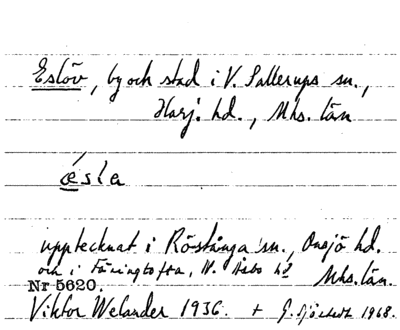 Eslöv, by och stad i V. Sallerups sn.,
Harj. hd., Mhs. län
æsla
upptecknat i Röstånga sn., Onsjö hd.
och i Färingtofta, N. Åsbo hd Mhs. län.
Nr 5620.
Viktor Welander 1936. + G. 1968.